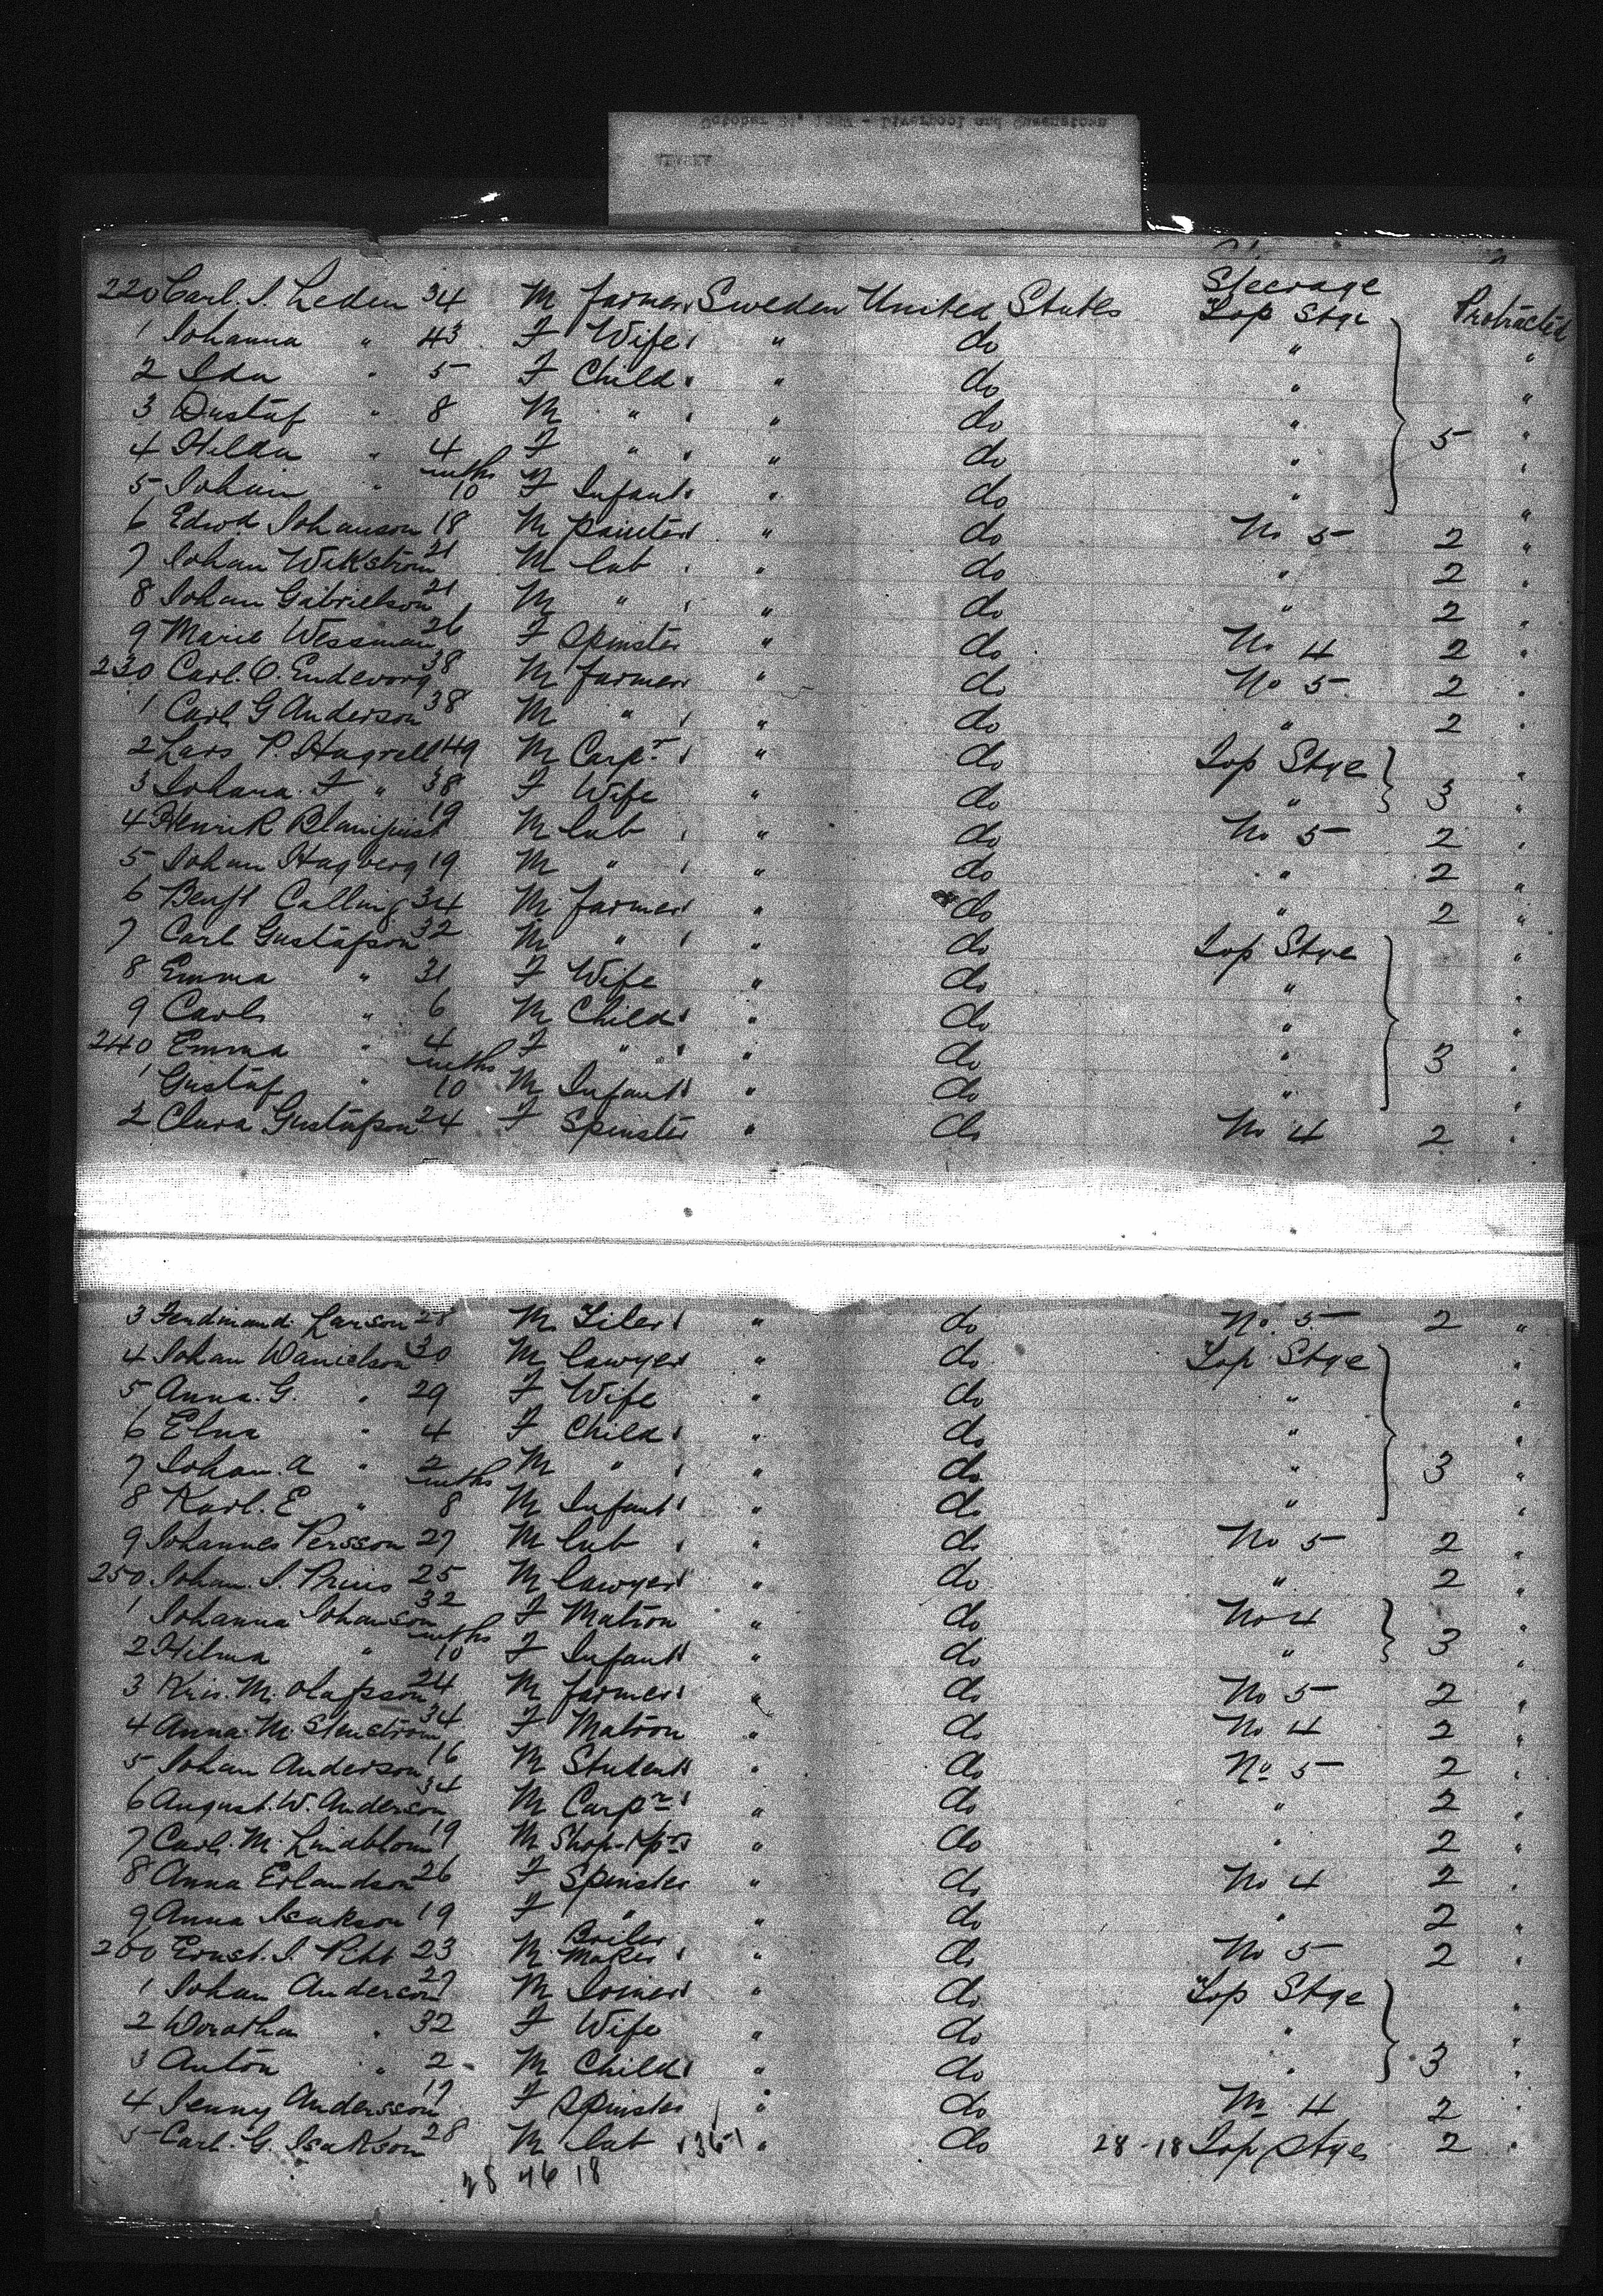 October 21, 1887 - Liverpool and Queenstown
Steerage
220 Carl. I. Leden 34 M farmer Sweden United States Top Stge Protracted
1 Johanna " 43 F Wife " do " "
2 Ida " 5 F Child " do " "
3 Gustaf " 8 M " " do " "
4 Hilda " 4 F " " do " 5 "
5 Johan " mths 10 F Infant " do " "
6 Edwd Johanson 18 M painter " do No 5 2 "
7 Johan Wikstrom 21 M lab " do " 2 "
8 Johan Gabrielson 21 M " " do " 2 "
9 Marie Wessman 26 F Spinster " do No 4 2 "
230 Carl. O. Endevorg 38 M farmer " do No 5 2 "
1 Carl G Anderson 38 M " " do " 2 "
2 Lars P. Hagvall 49 M Carpr " do Top Stge "
3 Johana. F " 38 F Wife " do " 3 "
4 Henrik Blamquist 19 M lab " do No 5 2 "
5 Johan Hagberg 19 M " " do " 2 "
6 Bengt Calling 34 M farmer " do " 2 "
7 Carl Gustafson 32 M " " do Top Stge "
8 Emma " 31 F Wife " do " "
9 Carl " 6 M Child " do " "
240 Emma " 4 F " " do " 3 "
1 Gustaf " mths 10 M Infant " do " "
2 Clara Gustafson 24 F Spinster " do No 4 2 "
3 Ferdinand Larson 28 M Tiler " do No. 5 2 "
4 Johan Danielson 30 M lawyer " do Top Stge "
5 Anna. G. " 29 F Wife " do " "
6 Elna " 4 F Child " do " "
7 Johan. A " 2 M " " do " 3 "
8 Karl. E " mths 8 M Infant " do " "
9 Johannes Persson 27 M lab " do No 5 2 "
250 Johan. I. Prius 25 M lawyer " do " 2 "
1 Johanna Johanson 32 F Matron " do No 4 "
2 Hilma " mths 10 F Infant " do " 3 "
3 Kris. M. Olafsson 24 M farmer " do No 5 2 "
4 Anna. M. Stenstrom 34 F Matron " do No 4 2 "
5 Johan Anderson 16 M Student " do No 5 2 "
6 August. W. Anderson 34 M Carpr " do " 2 "
7 Carl. M. Lindblom 19 M Shop-kpr " do " 2 "
8 Anna Erlandson 26 F Spinster " do No 4 2 "
9 Anna Isakson 19 F " " do " 2 "
260 Ernst. I. 23 M Boiler Maker " do No 5 2 "
1 Johan Anderson 27 M Joiner " do Top Stge "
2 Dorothea " 32 F Wife " do " "
3 Anton " 2 M Child " do " 3 "
4 Jenny Andersson 17 F Spinster " do No 4 2 "
5 Carl. G. Isakson 28 M lab 36-1 " do 28-18 Top Stge 2 "
28 46 18